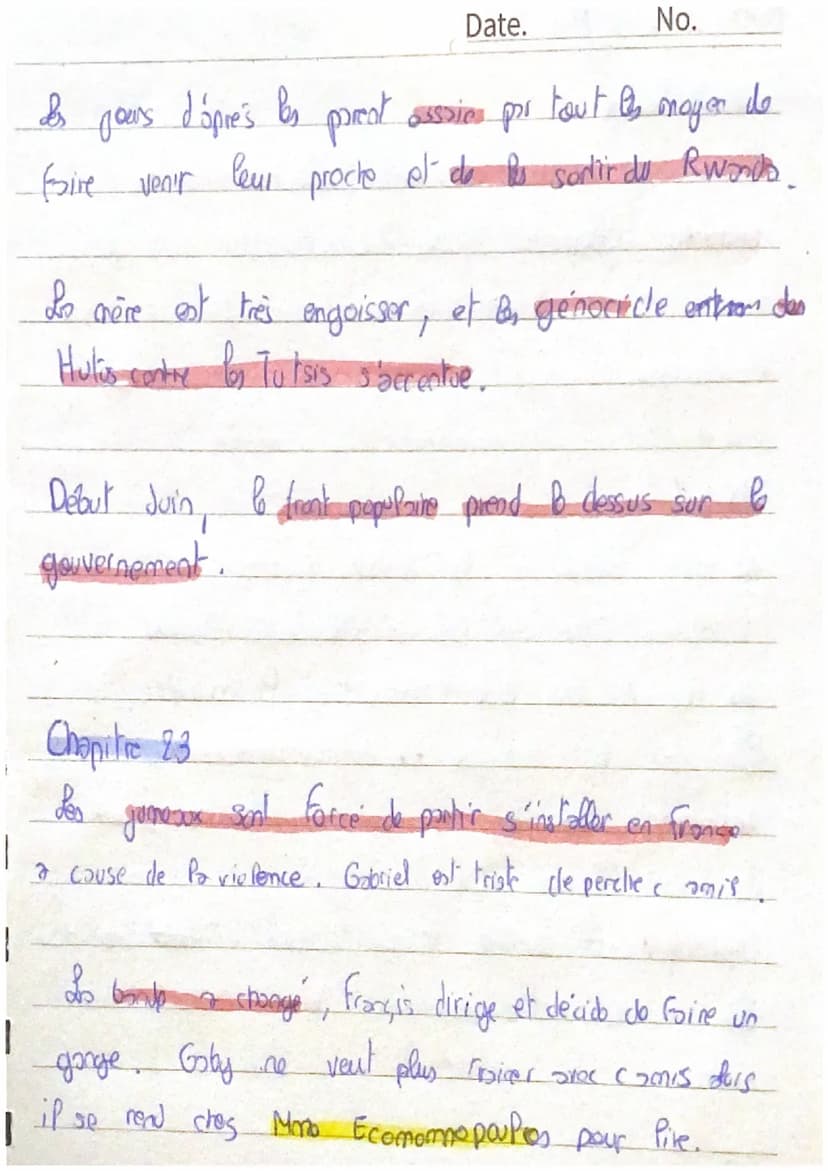 Date. No.
Les jours d'après les parent essaie par tout les moyen de
faire venir leur proche et de les sortir du Rwanda.
La mère est très engoisser, et les génocide des
Hutus contre les Tutsis s'accentue.
Début Juin, le front populaire prend le dessus sur le
gouvernement.
Chapitre 23
Les jumeaux sont forcé de partir s'installer en france
a cause de la violence. Gabriel est triste de perdre c amis.
La bande a changé, françis dirige et décide de faire un
gange. Gaby ne veut plus avec c amis
il se rend ches Mme Ecomomnopoulos pour lire.